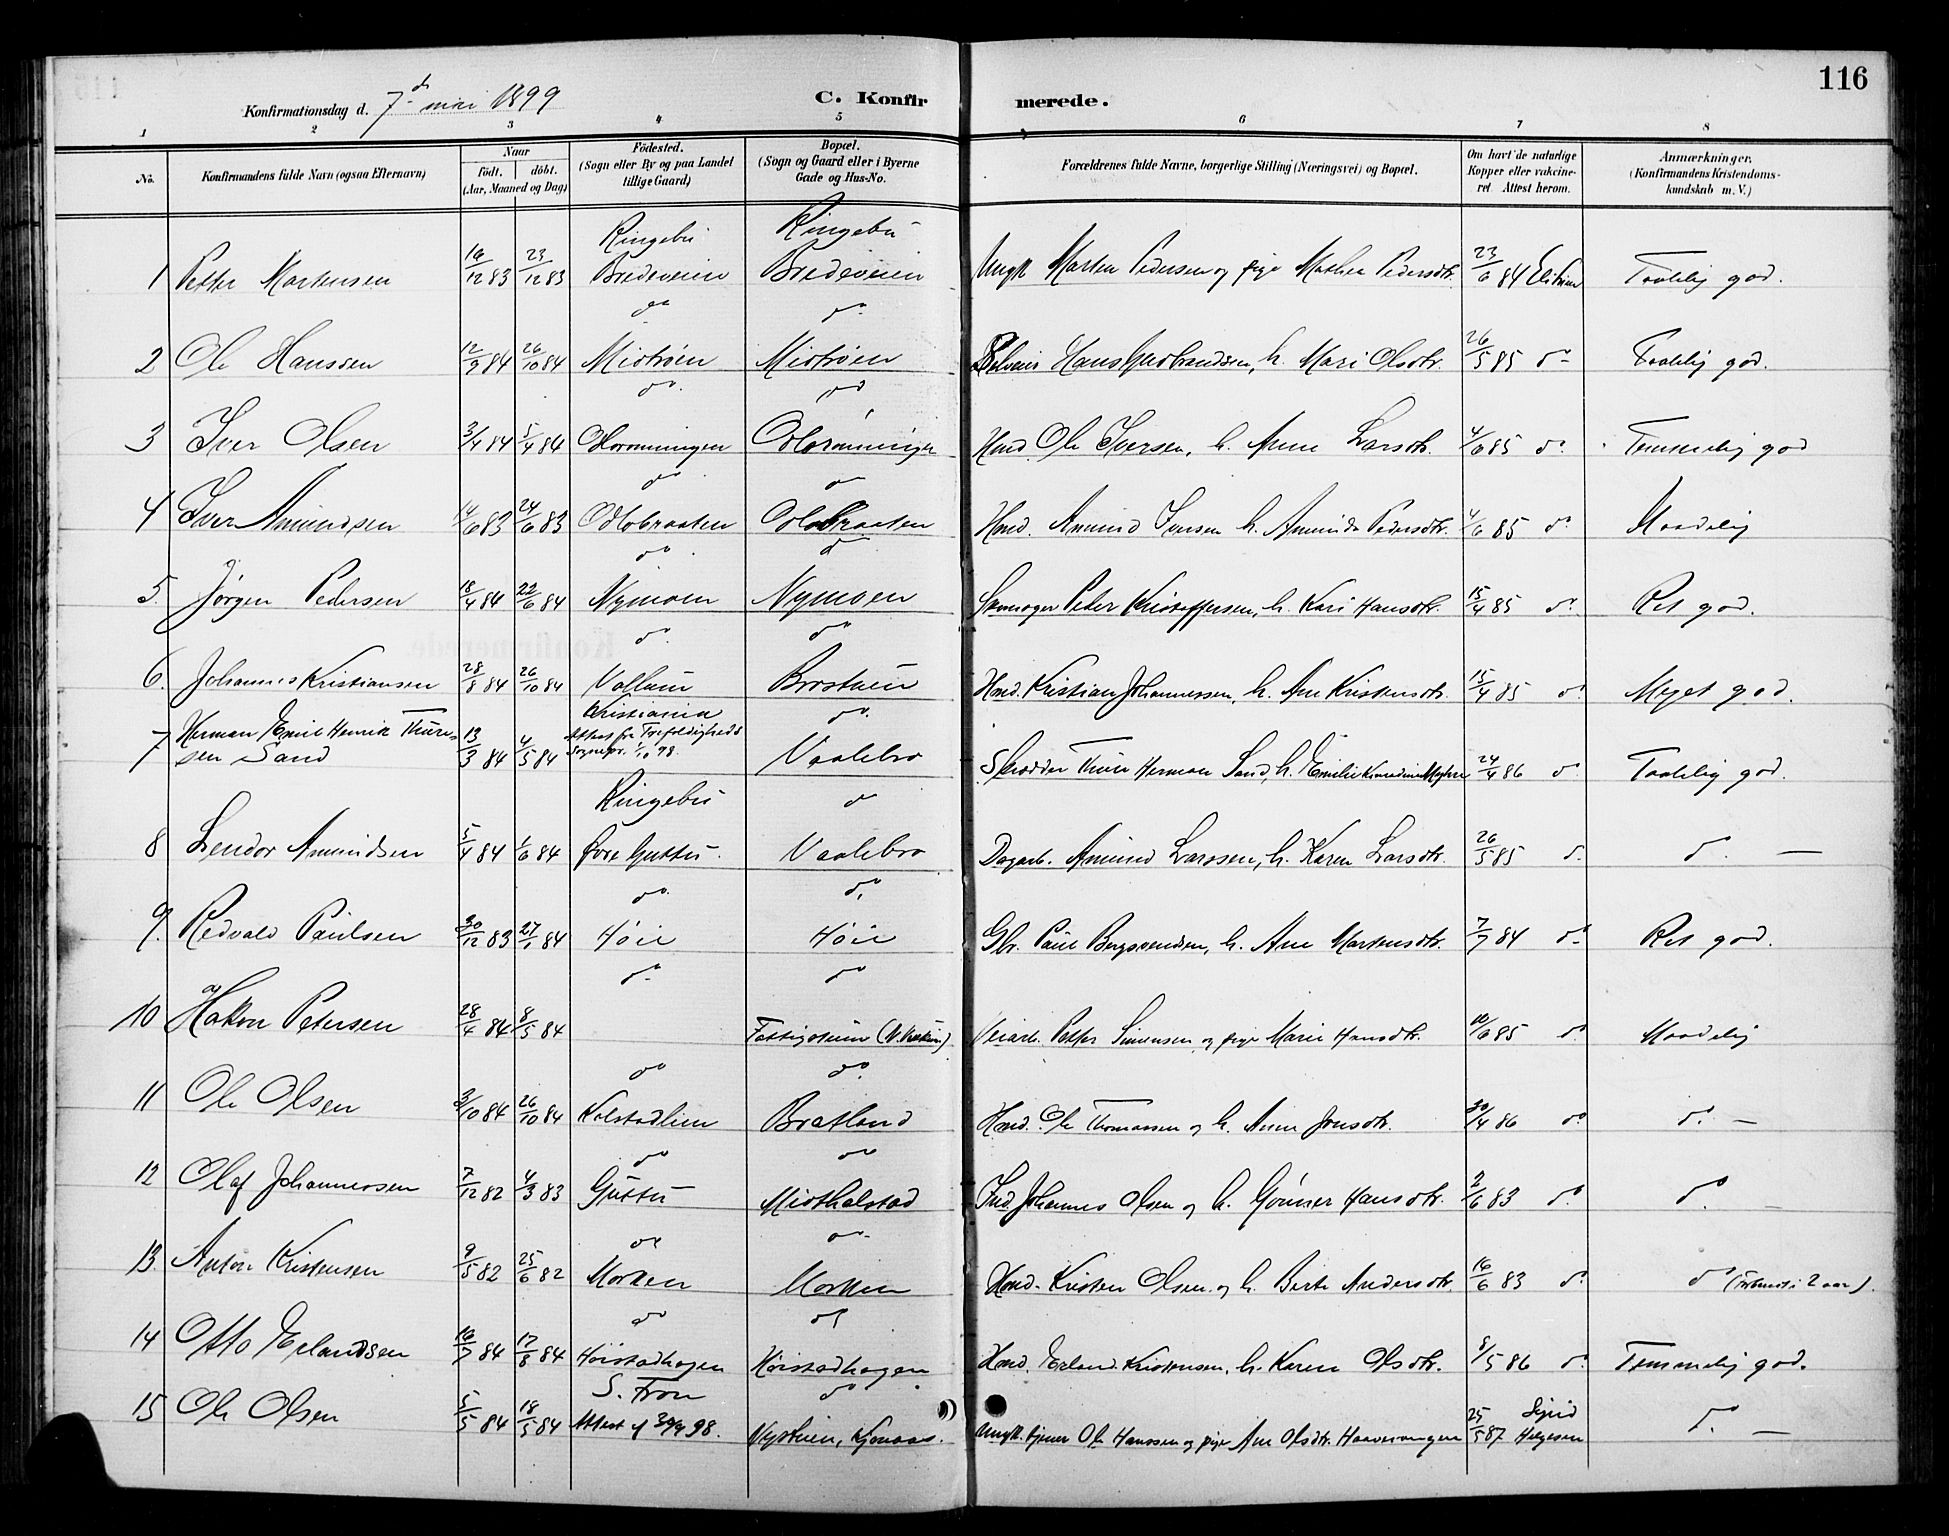 116
Konfirmationsdag d. 7d mai 1899 C. Konfir merede.
1 2 3 4 5 6 7 8
No. Konfirmandens fulde Navn (ogsaa Efternavn) Naar födt. döbt. (Aar, Maaned og Dag) Födested. (Sogn eller By og paa Landet tillige Gaard) Bopæl. (Sogn og Gaard eller i Byerne Gade og Hus-No. Forældrenes fulde Navne, borgerlige Stilling (Næringsvei) og Bopæl. Om havt de naturlige Kopper eller vakcineret. Attest herom. Anmærkninger. (Konfirmandens Kristendomskundskab m. V.)
Ringebu Ringebu
1 Petter Martensen 16/12 83 23/12 83 Bredeveien Bredeveien Ungk. Marten Pedersen og pige Mathea Pedersdtr. 23/6 84 Taalelig god.
do do
2 Ole Hanssen 12/9 84 26/10 84 Midtrøen Midtrøen Hans Gudbrandsen, h. Mari Olsdtr. 26/5 85 do Taalelig god.
do do
3 Iver Olsen 3/4 84 5/4 84 Hmd. Ole Iversen, h. Anne Larsdtr. 4/6 85 do Temmelig god
do do
4 Iver Amundsen 14/6 83 24/6 83 Odlobraaten Odlobraaten Hmd. Amund Iversen h. Amunda Pedersdtr. 4/6 85 do Maadelig
do do
5. Jørgen Pedersen 18/4 84 22/6 84 Nymoen Nymoen Peder Kristoffersen, h. Kari Hansdtr. 15/4 85 do Ret god.
do do
6. Johannes Kristiansen 28/8 84 26/10 84 Vollum Brostuen Hmd. Kristian Johannessen, h. Ane Kristensdtr. 15/4 85 do Meget god.
Kristiania do
7 Herman Emil Henrik Thuresen Sand 13/3 84 4/5 84 Attest fra Trefoldigheds Sognepr. 1/10 98. Vaalebro Skrædder Thure Herman Sand, h. Emilie 24/4 86 do Taalelig god.
Ringebu do
8 Lendor Amundsen 5/4 84 1/6 84 Øvre Guttu. Vaalebro Dagarb. Amund Larssen, h. Karen Larsdtr. 26/5 85 do do —
do do
9. Redvald Paulsen 30/12 83 27/1 84 Høie Høie Gbr. Paul Bergsvendsen, h. Ane Martensdtr. 7/7 84 do Ret god.
do do
10 Haakon Petersen 28/4 84 8/5 84 Veiarb. Petter Simensen og pige Marie Hansdtr. 10/6 85 do Maadelig
do do
11 Ole Olsen 3/10 84 26/10 84 Kolstadlien Bratland Hmd. Ole Thomassen og h. Anne Jonsdtr. 30/4 86 do do —
do do
12 Olaf Johannessen 7/12 82 4/3 83 Guttu Midtkolstad Ind. Johannes Olsen og h. Gønner Hansdtr. 2/6 83 do do —
do do
13. Anton Kristensen 9/5 82 25/6 82 Morken Morken Hmd. Kristen Olsen og h. Berte Andersdtr. 16/6 83 do do (Forberedt i 2 aar).
do do
14 Otto Erlandsen 16/7 84 17/8 84 Høistadhagen Høistadhagen Hmd. Erland Kristensen, h. Karen Olsdtr. 8/5 86 do Temmelig god.
S. Fron do
15 Ole Olsen 5/5 84 18/5 84 Attest af 30/9 98. Nystuen, Kjønaas. Ungk. tjener Ole Hanssen og pige Ane Olsdtr. 25/5 87 Sigrid Helgesen do —